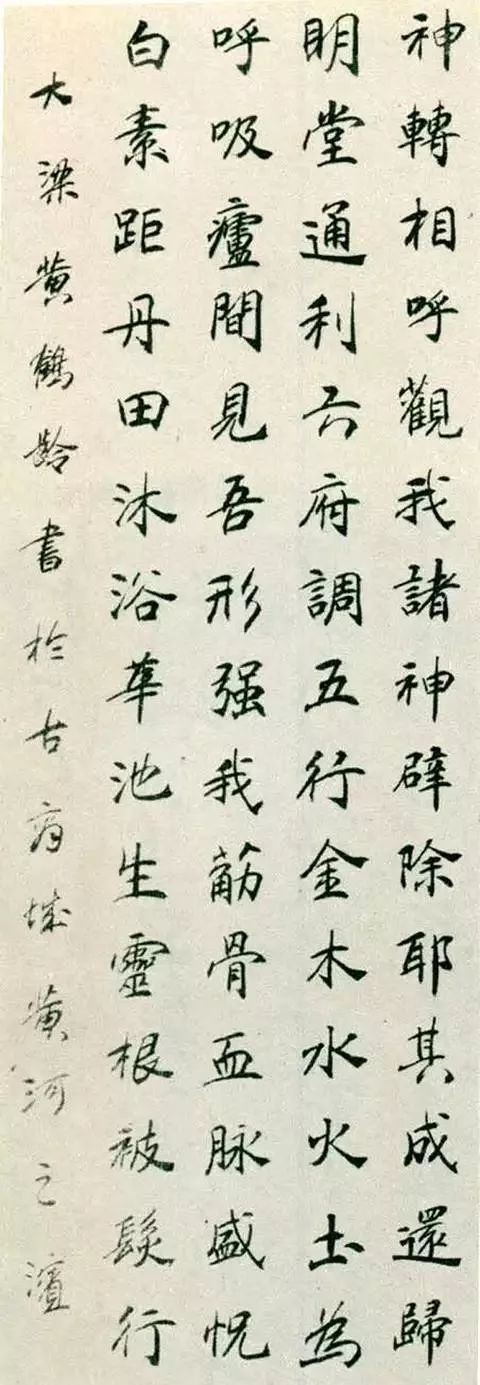 神轉相呼觀我諸神辟除耶其成還歸
明堂通利六府調五行金木水火土為
呼吸廬間見吾形强我筋骨血脉盛怳
白素距丹田沐浴華池生靈根被髮行
大梁黄鶴齡書於古府城黄河之濱